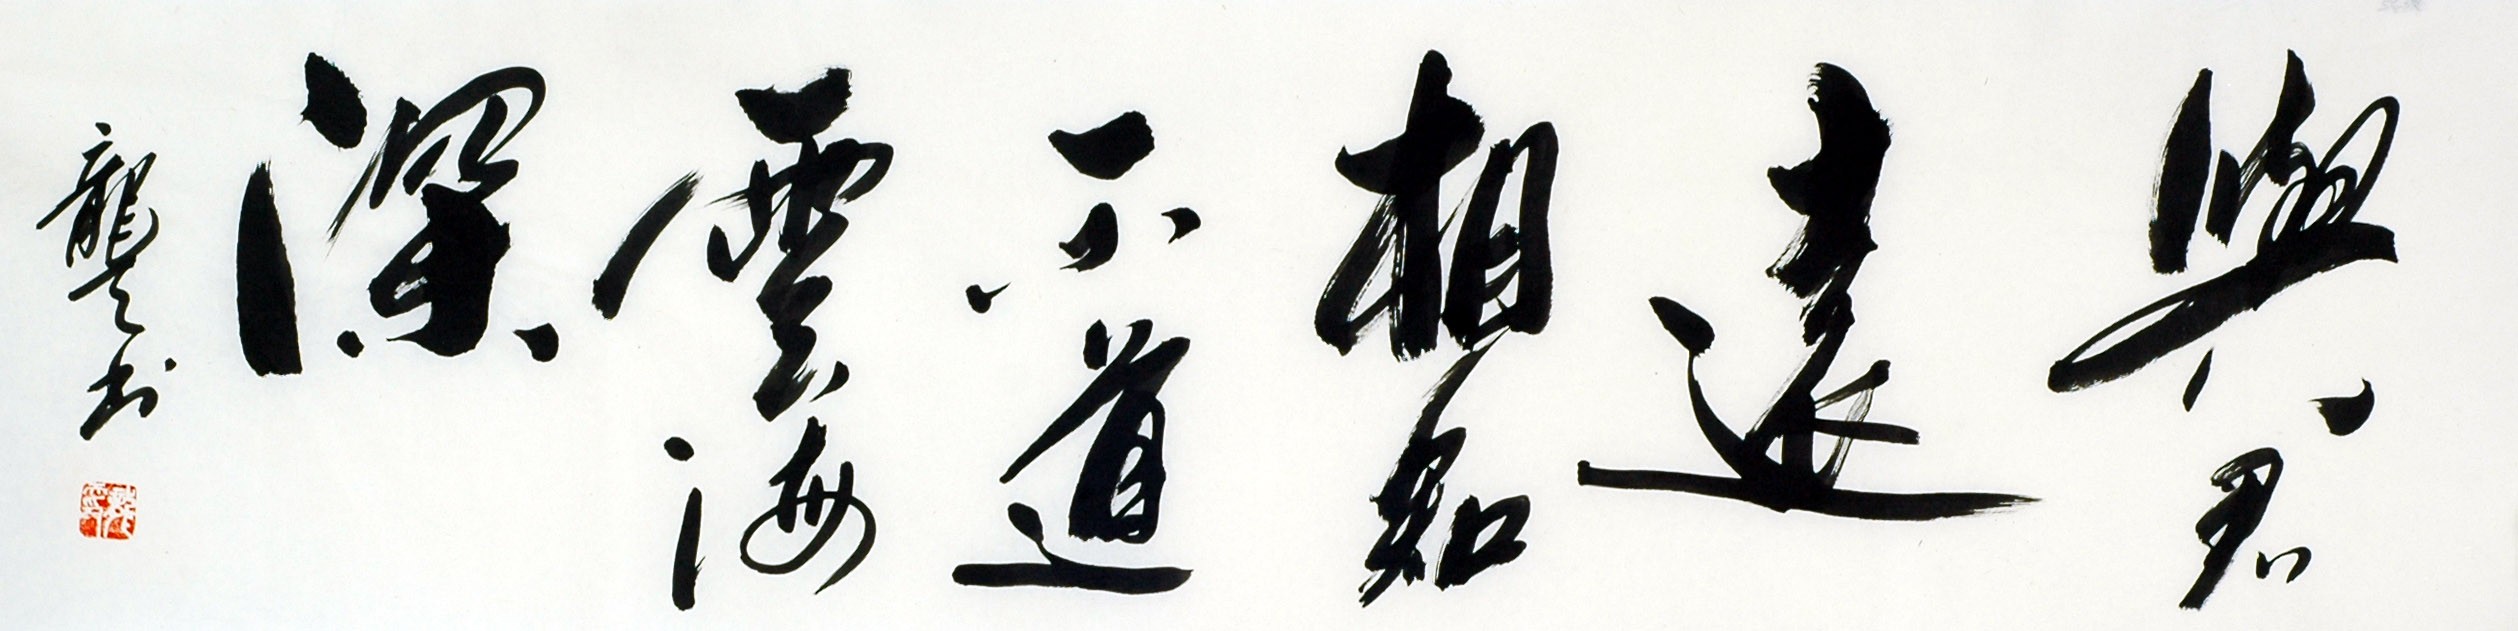 與君
遠
相知
不道
雲海
深
龔書